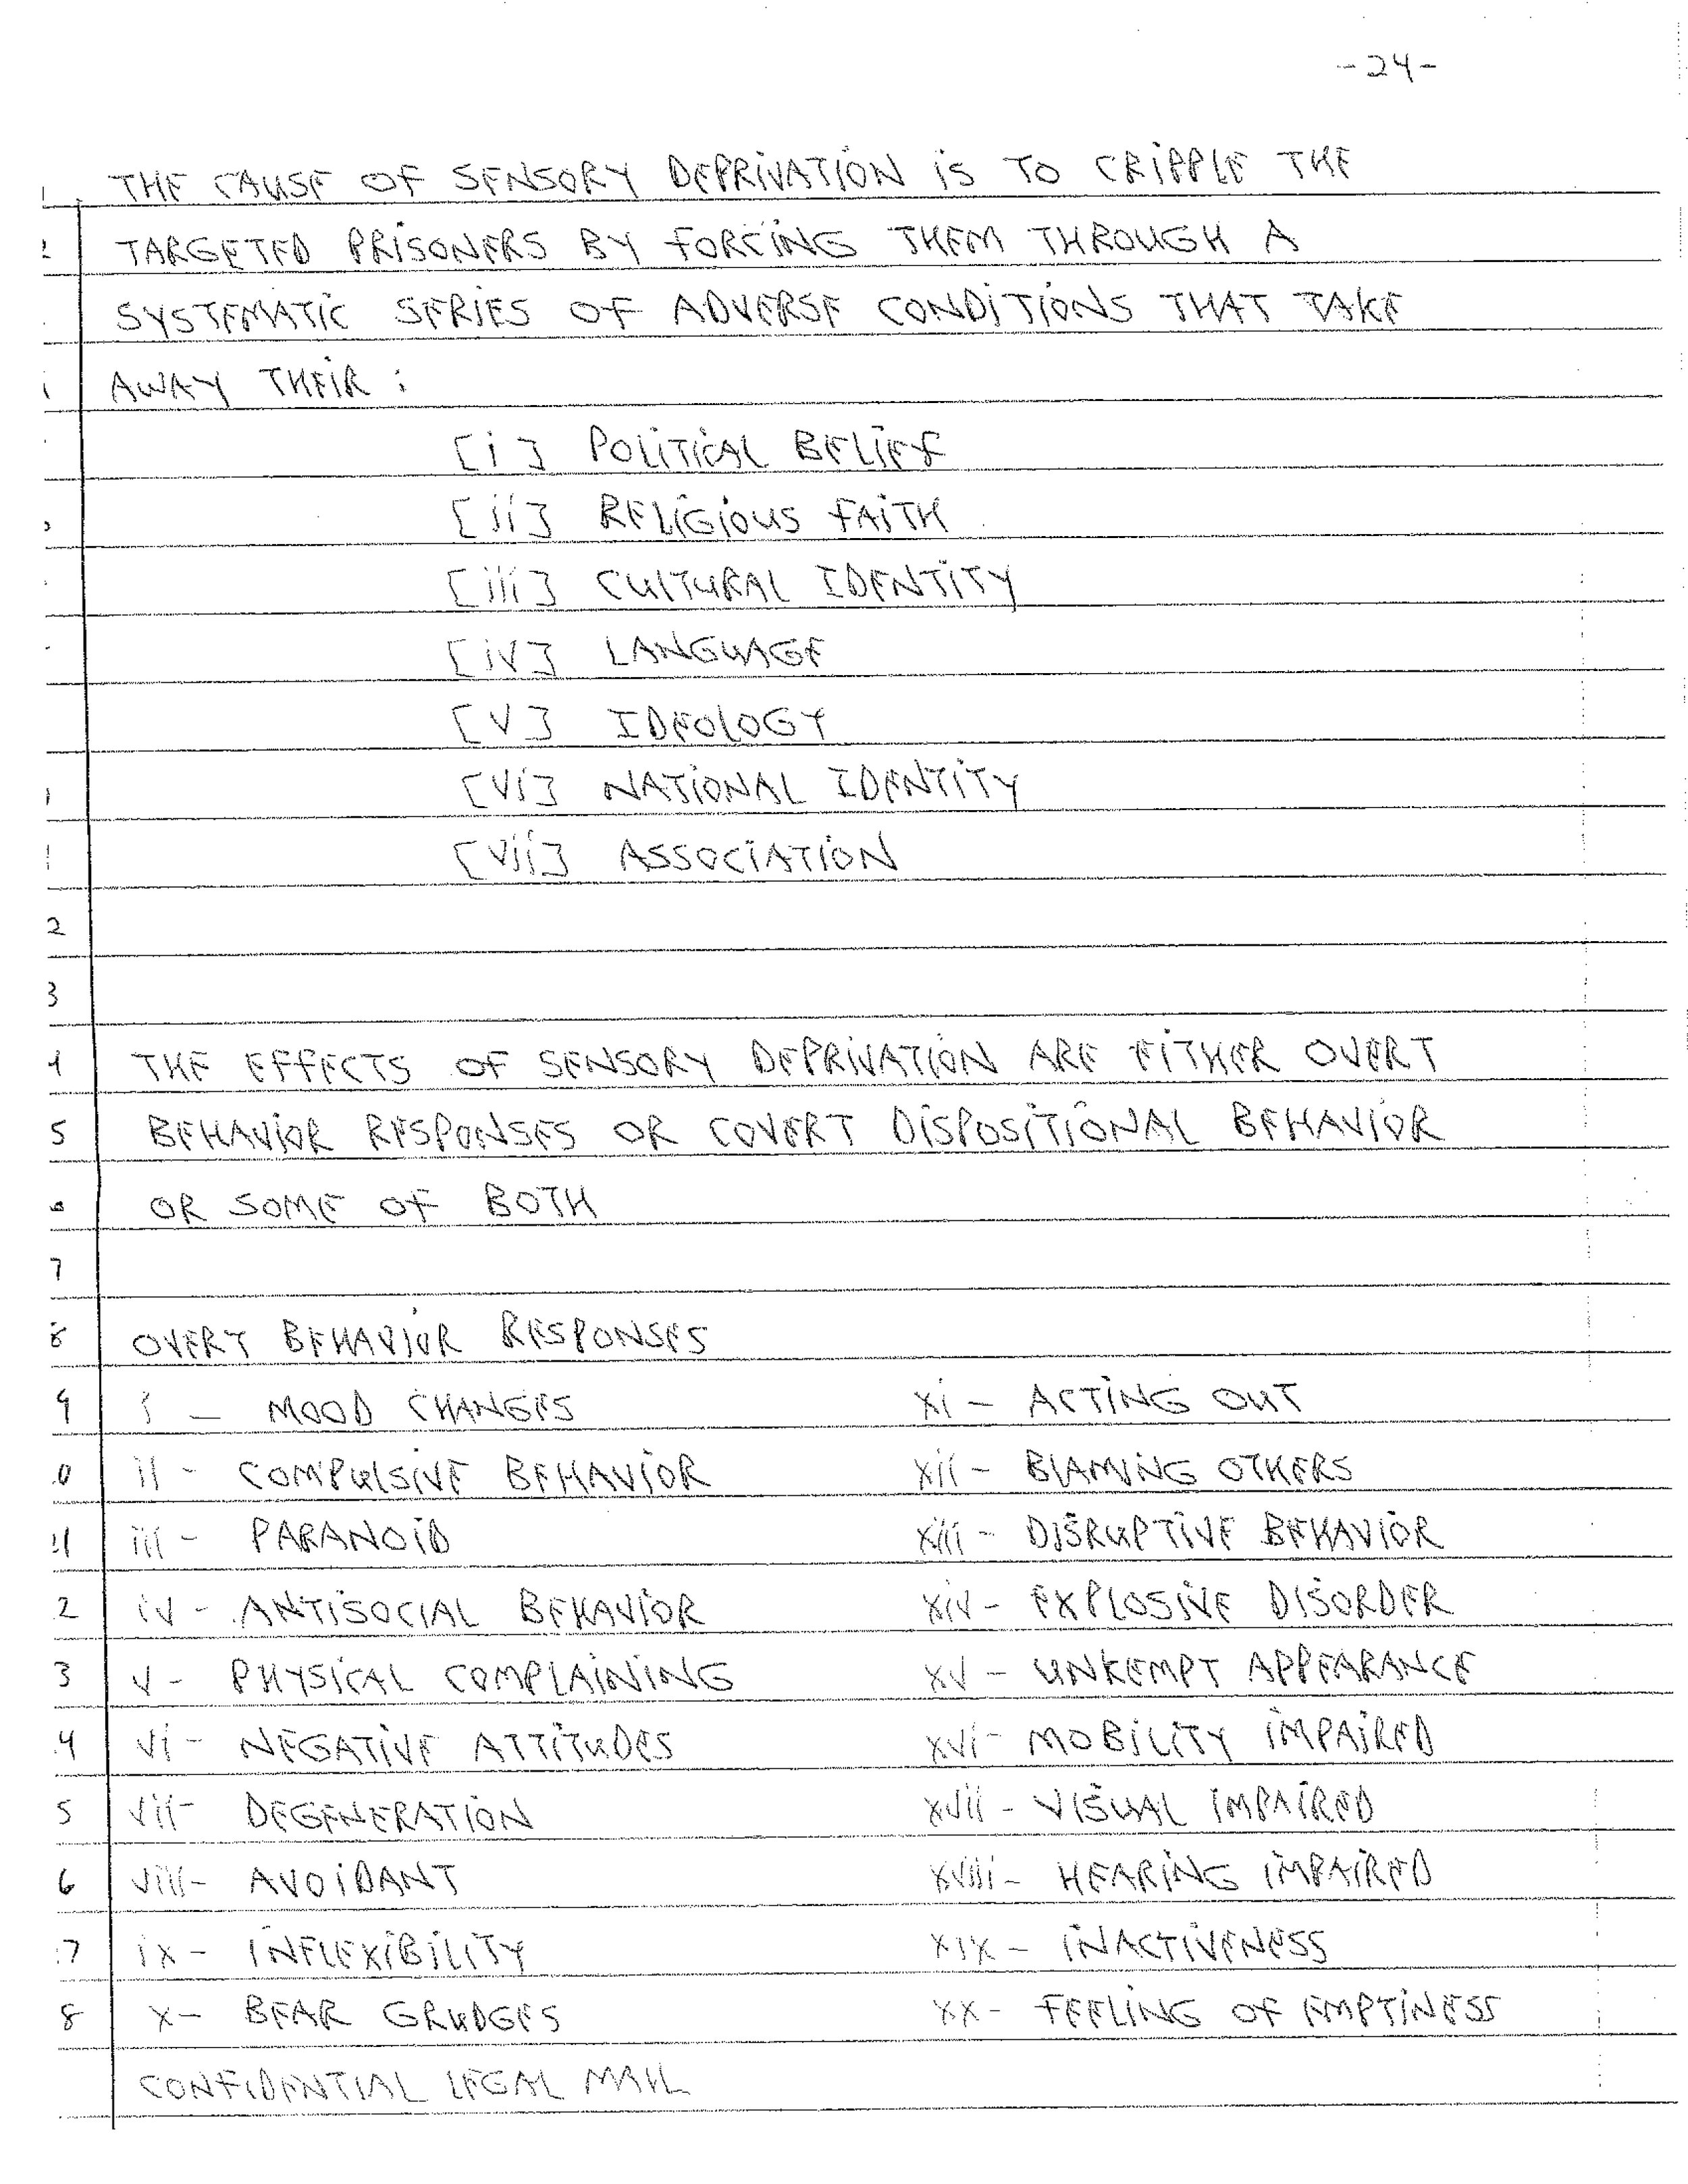 -24-
1 THE CAUSE OF SENSORY DEPRIVATION iS TO CRiPPLE THE
2 TARGETED PRiSONERS BY FORCiNG THEM THROUGH A
SYSTEMATiC SERIES OF ADVERSE CONDiTiONS THAT TAKE
AWAY THEiR :
[i] POLiTiCAL BELiEF
[ii] RELiGiOUS FAiTH
[iii] CULTURAL IDENTiTY
[iv] LANGUAGE
[V] IDEOLOGY
[Vi] NATiONAL IDENTiTY
[Vii] ASSOCiATiON
2
3
4 THE EFFECTS OF SENSORY DEPRiVATiON ARE EiTHER OVERT
5 BEHAViOR RESPONSES OR COVERT DiSPOSiTiONAL BEHAViOR
6 OR SOME OF BOTH
7
8 OVERT BEHAViOR RESPONSES
9 i – MOOD CHANGES xi – ACTiNG OUT
0 ii - COMPULSiVE BEHAViOR xii – BLAMiNG OTHERS
1 iii - PARANOiD xiii - DiSRUPTiVE BEHAViOR
2 iv - ANTiSOCiAL BEHAViOR xiv - EXPLOSiVE DiSORDER
3 v - PHYSiCAL COMPLAiNiNG xv - UNKEMPT APPEARANCE
4 vi - NEGATiVE ATTiTUDES xvi - MOBiLiTY iMPAiRED
5 vii - DEGENERATiON xvii - ViSUAL iMPAiRED
6 viii - AVOiDANT xviii - HEARiNG iMPAiRED
7 ix - iNFLEXiBiLiTY xix - iNACTiVENESS
8 x - BEAR GRUDGES xx - FEELiNG OF EMPTiNESS
CONFiDENTiAL LEGAL MAiL